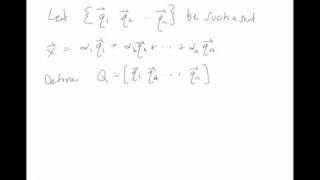 Let { q⃗₁ q⃗₂ ⋯ q⃗ₙ } be such a set
x⃗ = α₁q⃗₁ + α₂q⃗₂ + ⋯ + αₙq⃗ₙ
Define Q = [ q⃗₁ q⃗₂ ⋯ q⃗ₙ ]